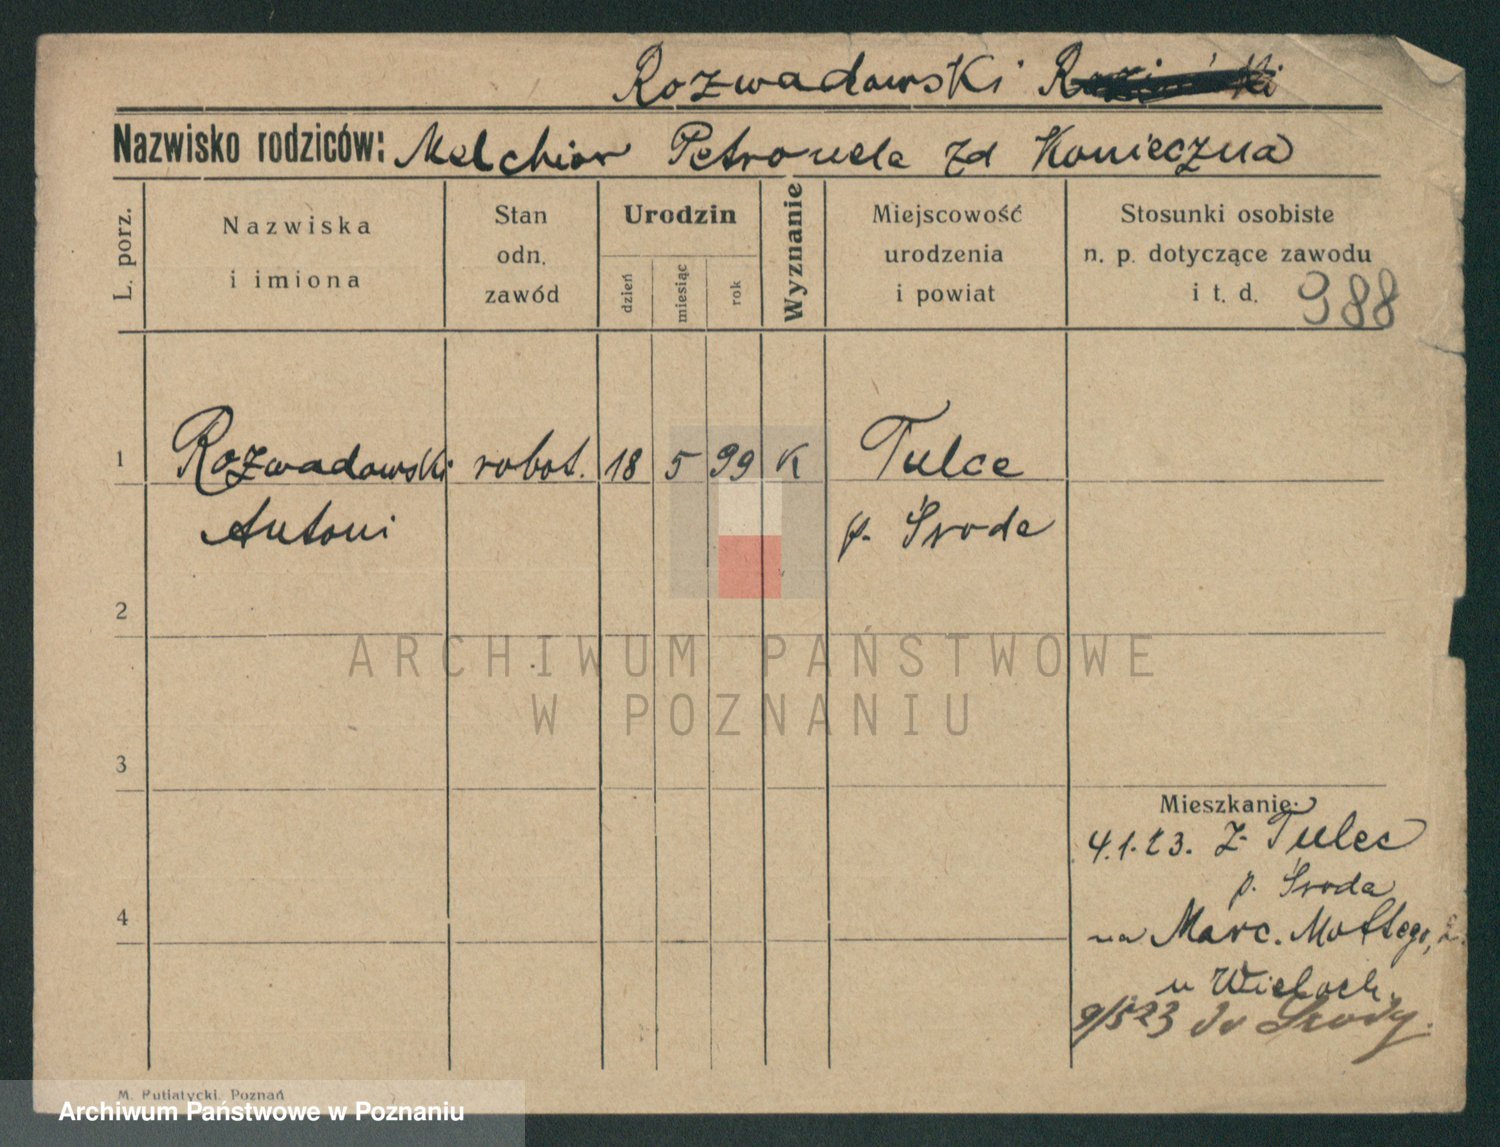 Rozwadowski
Nazwisko rodziców: Melchior Petronela zd Konieczna
L. porz.
Nazwiska
i imiona
Stan
odn.
zawód
Urodzin
dzień
miesiąc
rok
Wyznanie
Miejscowość
urodzenia
i powiat
Stosunki osobiste
n. p. dotyczące zawodu
i t. d.
988
1 Rozwadowski robot. 18 5 99 K Tulce
Antoni p. Środa
2
ARCHIWUM PAŃSTWOWE
W POZNANIU
3
Mieszkanie:
4.1.23. z Tulec
p. Środa
4
na Marc. Mottego, 2.
u Wieloch.
9/5 23 do Środy.
M. Putiatycki, Poznań
Archiwum Państwowe w Poznaniu